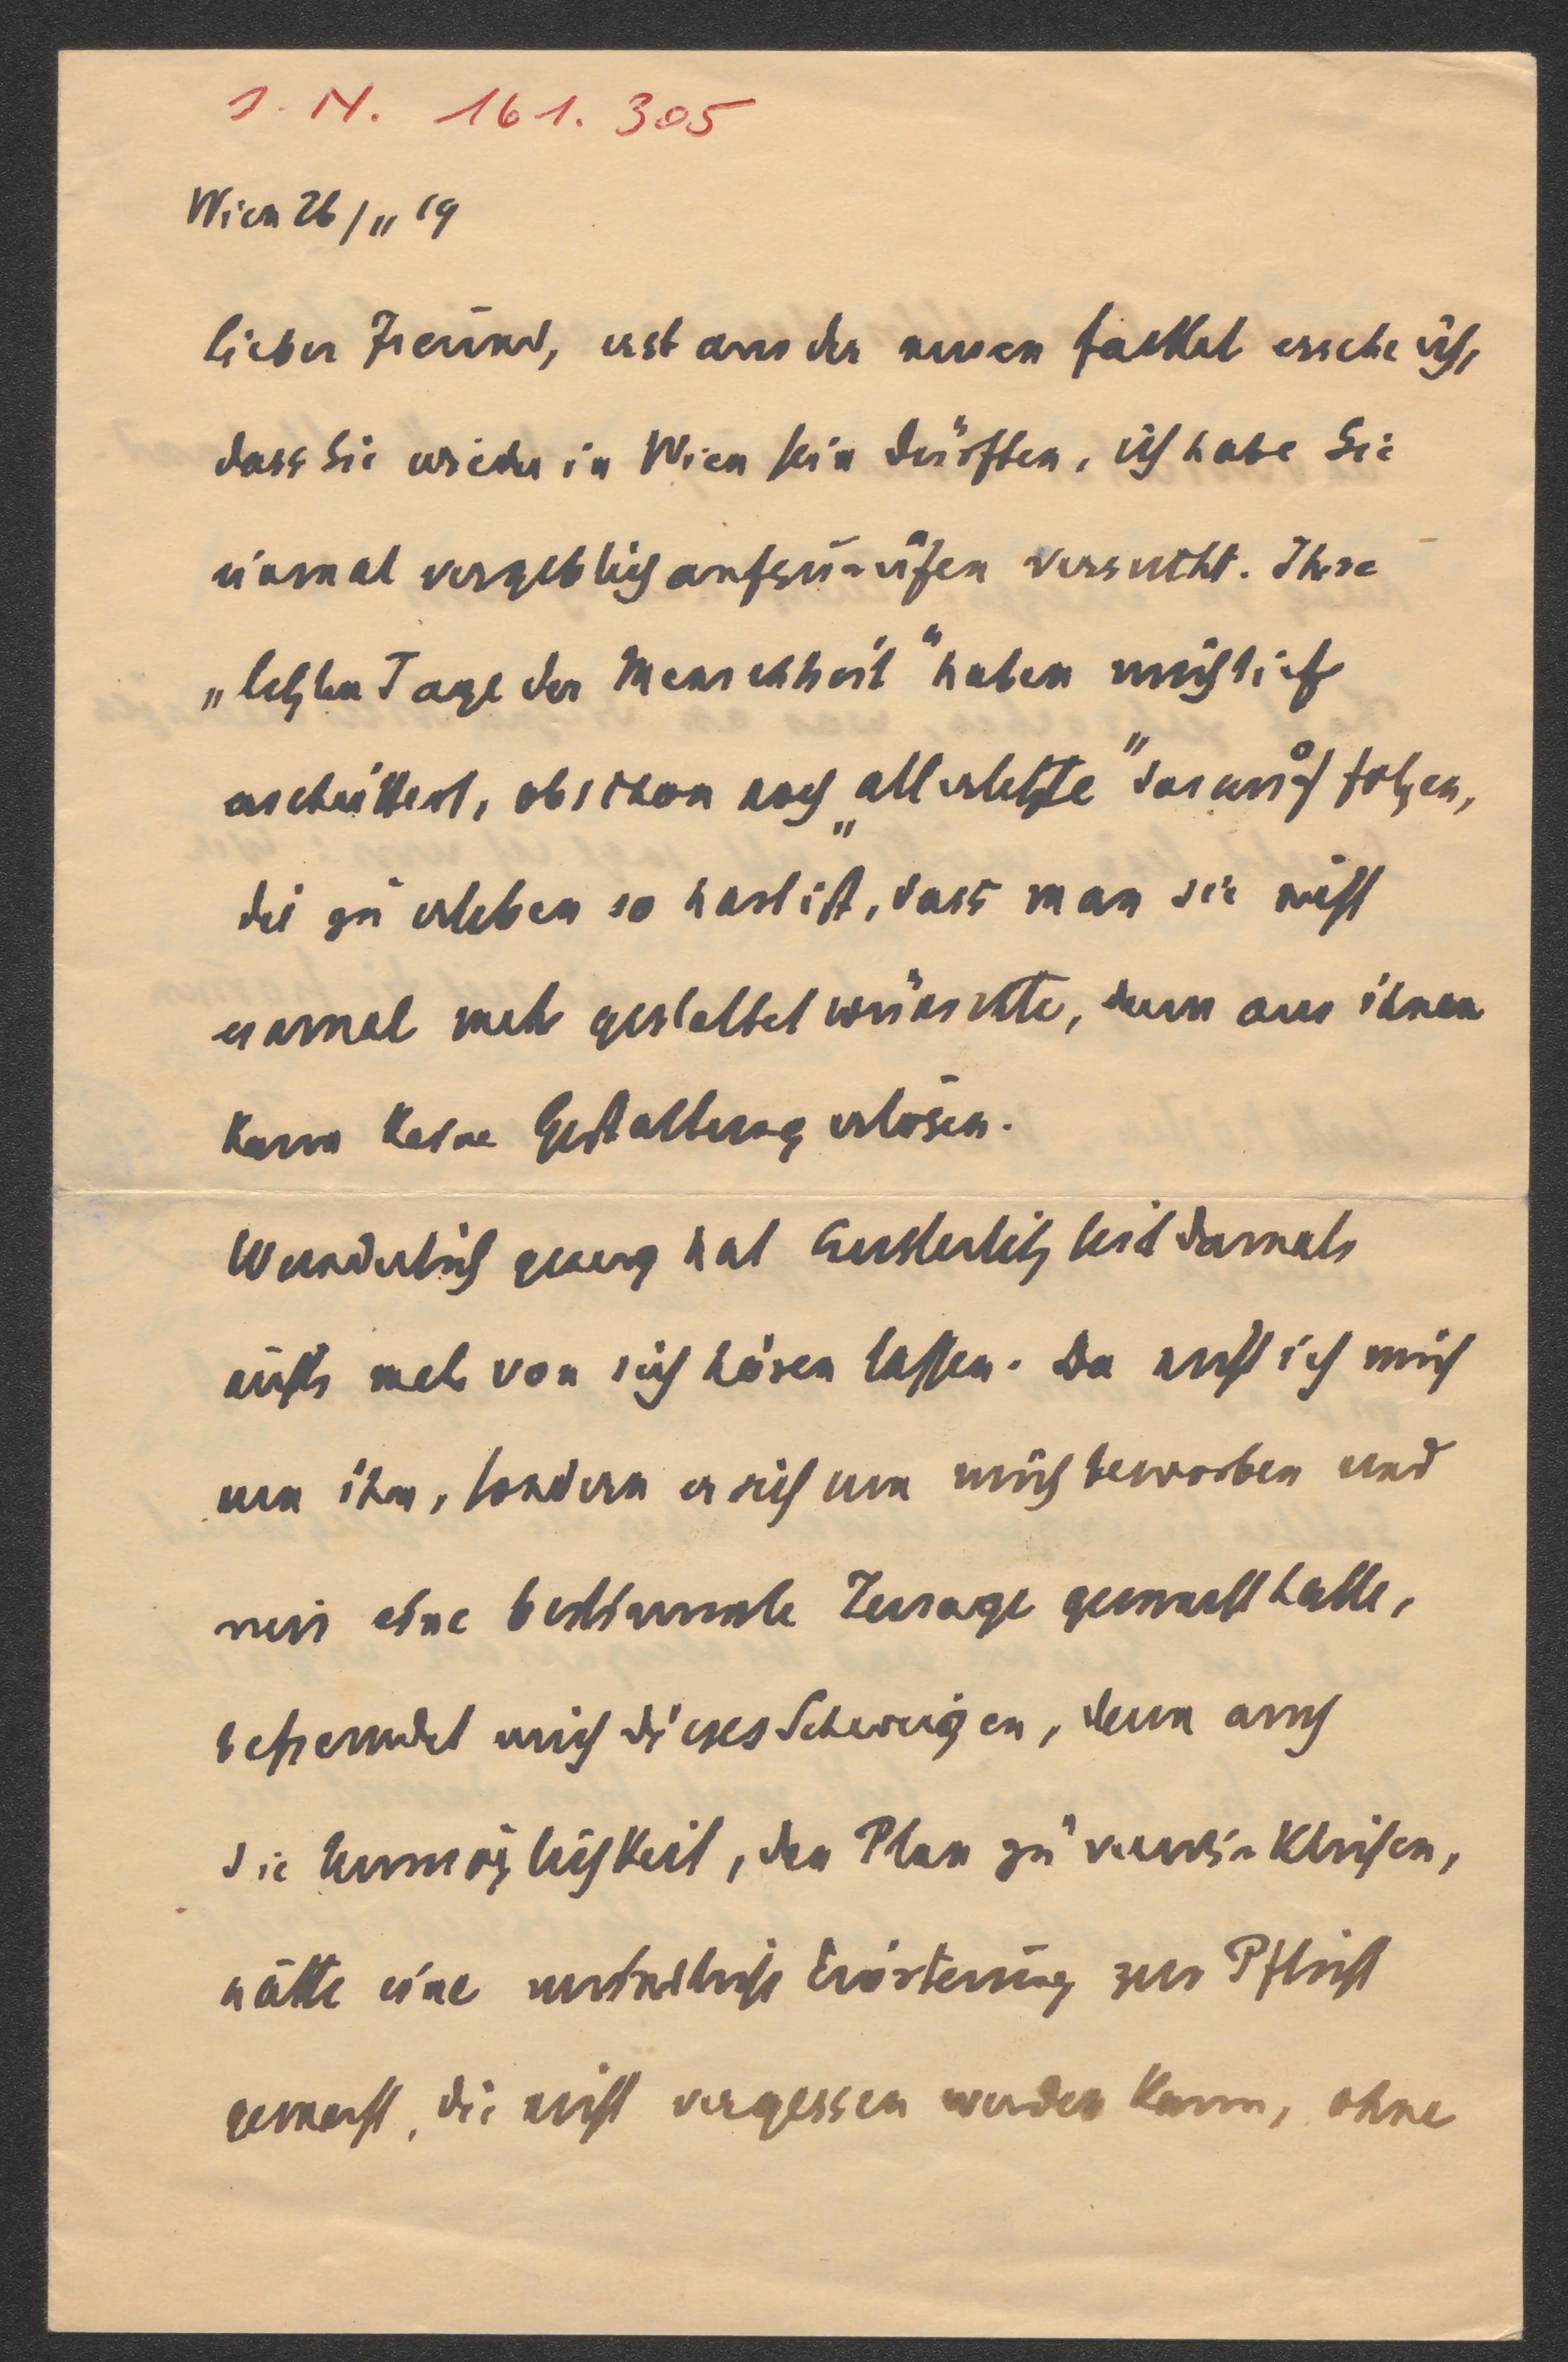 I. N. 161.305
Wien 26/11 19
lieber Freund, erst aus der neuen Fackel ersehe ich,
dass Sie wieder in Wien sein dürften, ich habe Sie
einmal vergeblich anfzurufen versucht. Ihre
„letzten Tage der Menschheit" haben mich tief
erschüttert, obschon noch „allerletzte" darauf folgen,
die zu erleben so hart ist, dass man sie nicht
einmal mehr gestaltet wünschte, denn aus ihnen
kann keine Gestaltung erlösen.
Wunderlich genug hat Austerlitz seit damals
nichts mehr von sich hören lassen. Da nicht ich mich
um ihn, sondern er sich um mich beworben und
mir eine bestimmte Zusage gemacht hatte,
befremdet mich dieses Schweigen, denn auch
die Unmöglichkeit, den Plan zu verwirklichen,
hätte eine mündliche Erörterung zur Pflicht
gemacht, die nicht vergessen werden kann, ohne